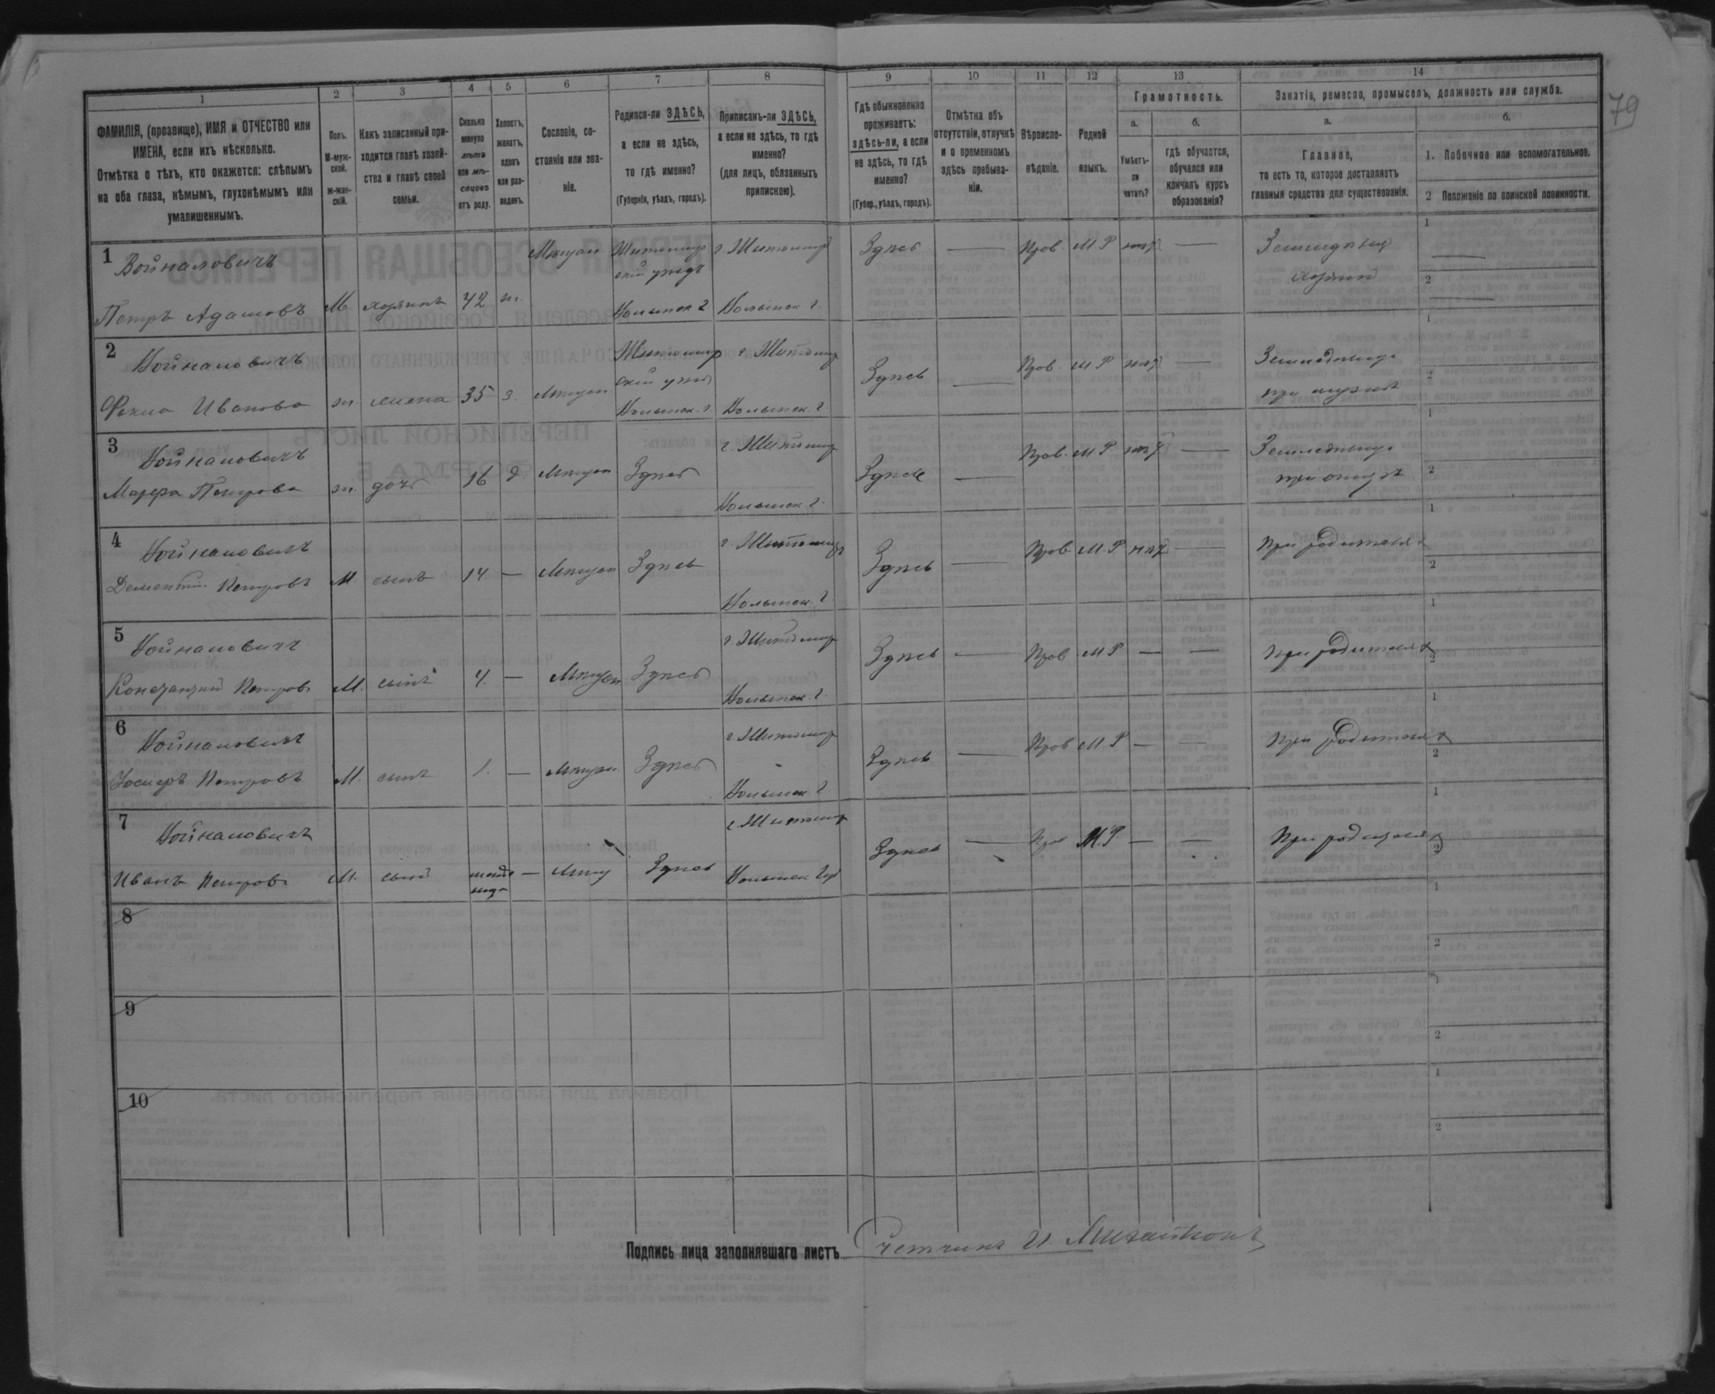 79
1 2 3 4 5 6 7 8 9 10 11 12 13 14
ФАМИЛІЯ, (прозвище), ИМЯ и ОТЧЕСТВО или
ИМЕНА, если ихъ нѣсколько.
Отмѣтка о тѣхъ, кто окажется: слѣпымъ
на оба глаза, нѣмымъ, глухонѣмымъ или
умалишеннымъ.
Полъ.
М-муж-
ской.
ж-жен-
скій.
Какъ записанный при-
ходится главѣ хозяй-
ства и главѣ своей
семьи.
Сколько
минуло
лѣтъ
или мѣ-
сяцевъ
отъ роду.
Холостъ,
женатъ,
вдовъ
или раз-
веденъ.
Сословіе, со-
стояніе или зва-
ніе.
Родился-ли ЗДѢСЬ,
а если не здѣсь,
то гдѣ именно?
(Губернія, уѣздъ, городъ).
Приписанъ-ли ЗДѢСЬ,
а если не здѣсь, то гдѣ
именно?
(для лицъ, обязанныхъ
припискою).
Гдѣ обыкновенно
проживаетъ:
здѣсь-ли, а если
не здѣсь, то гдѣ
именно?
(Губер., уѣздъ, городъ).
Отмѣтка объ
отсутствіи, отлучкѣ
и о временномъ
здѣсь пребыва-
ніи.
Вѣроиспо-
вѣданіе.
Родной
языкъ.
Грамотность.
а.
Умѣетъ-
ли
читать?
б.
гдѣ обучается,
обучался или
кончилъ курсъ
образованія?
Занятія, ремесло, промыселъ, должность или служба.
а.
Главное,
то есть то, которое доставляетъ
главныя средства для существованія.
б.
1. Побочное или вспомогательное.
2 Положеніе по воинской повинности.
1 Войналовичъ
Петръ Адамовъ М хозяинъ 42 ж. Мѣщан Житомир г. Житомир
Волынск г Волынск г. Здѣсь — Прав М Р нѣт —
2 Войналовичъ
Ивановa ж. жена 35 з. Мѣщан Житомир г. Житомир
Волынск. г Волынск г Здѣсь — Прав. М Р нѣт —
3 Войналовичъ
Петрова ж. дочь 16 д Мѣщан Здѣсь г Житомир
Волынск г. Здѣсь — Прав. М Р нѣт —
4 Войналовичъ
Дементій Петровъ М сынъ 14 — Мѣщан Здѣсь г Житомир
Волынск. г Здѣсь — Прав М Р нѣт — При родителях
5 Войналовичъ
Петровъ М. сынъ 4. — Мѣщан Здѣсь г Житомир
Волынск. г. Здѣсь — Прав М Р — — При родителях
6 Войналовичъ
Іосифъ Петровъ М. сынъ 1. — Мѣщан Здѣсь г Житомир
Волынск г Здѣсь — Прав М Р — — При родителях
7 Войналовичъ
Иванъ Петровъ М. сын — Мѣщ Здѣсь г Житомир
Волынск Здѣсь — Прав М.Р — — При родителях
8
9
10
Подпись лица заполнявшаго листъ Счетчикъ И.